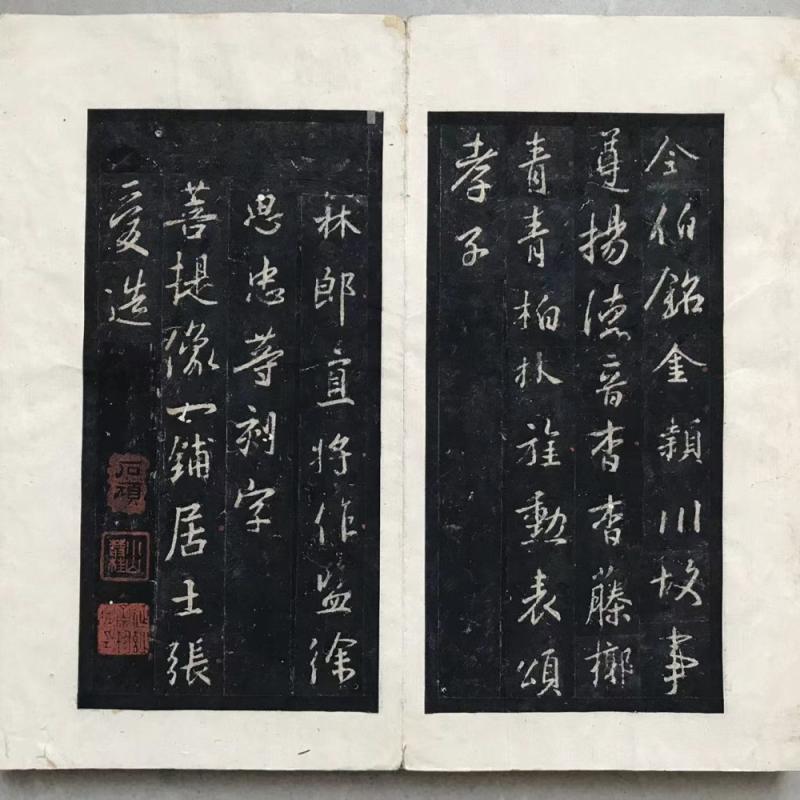 令伯銘金潁川故事
遵揚德音杳杳藤槨
青青柏林旌勳表頌
孝子
林郎直將作監徐
思忠等刻字
菩提像一鋪居士張
愛造
石頑